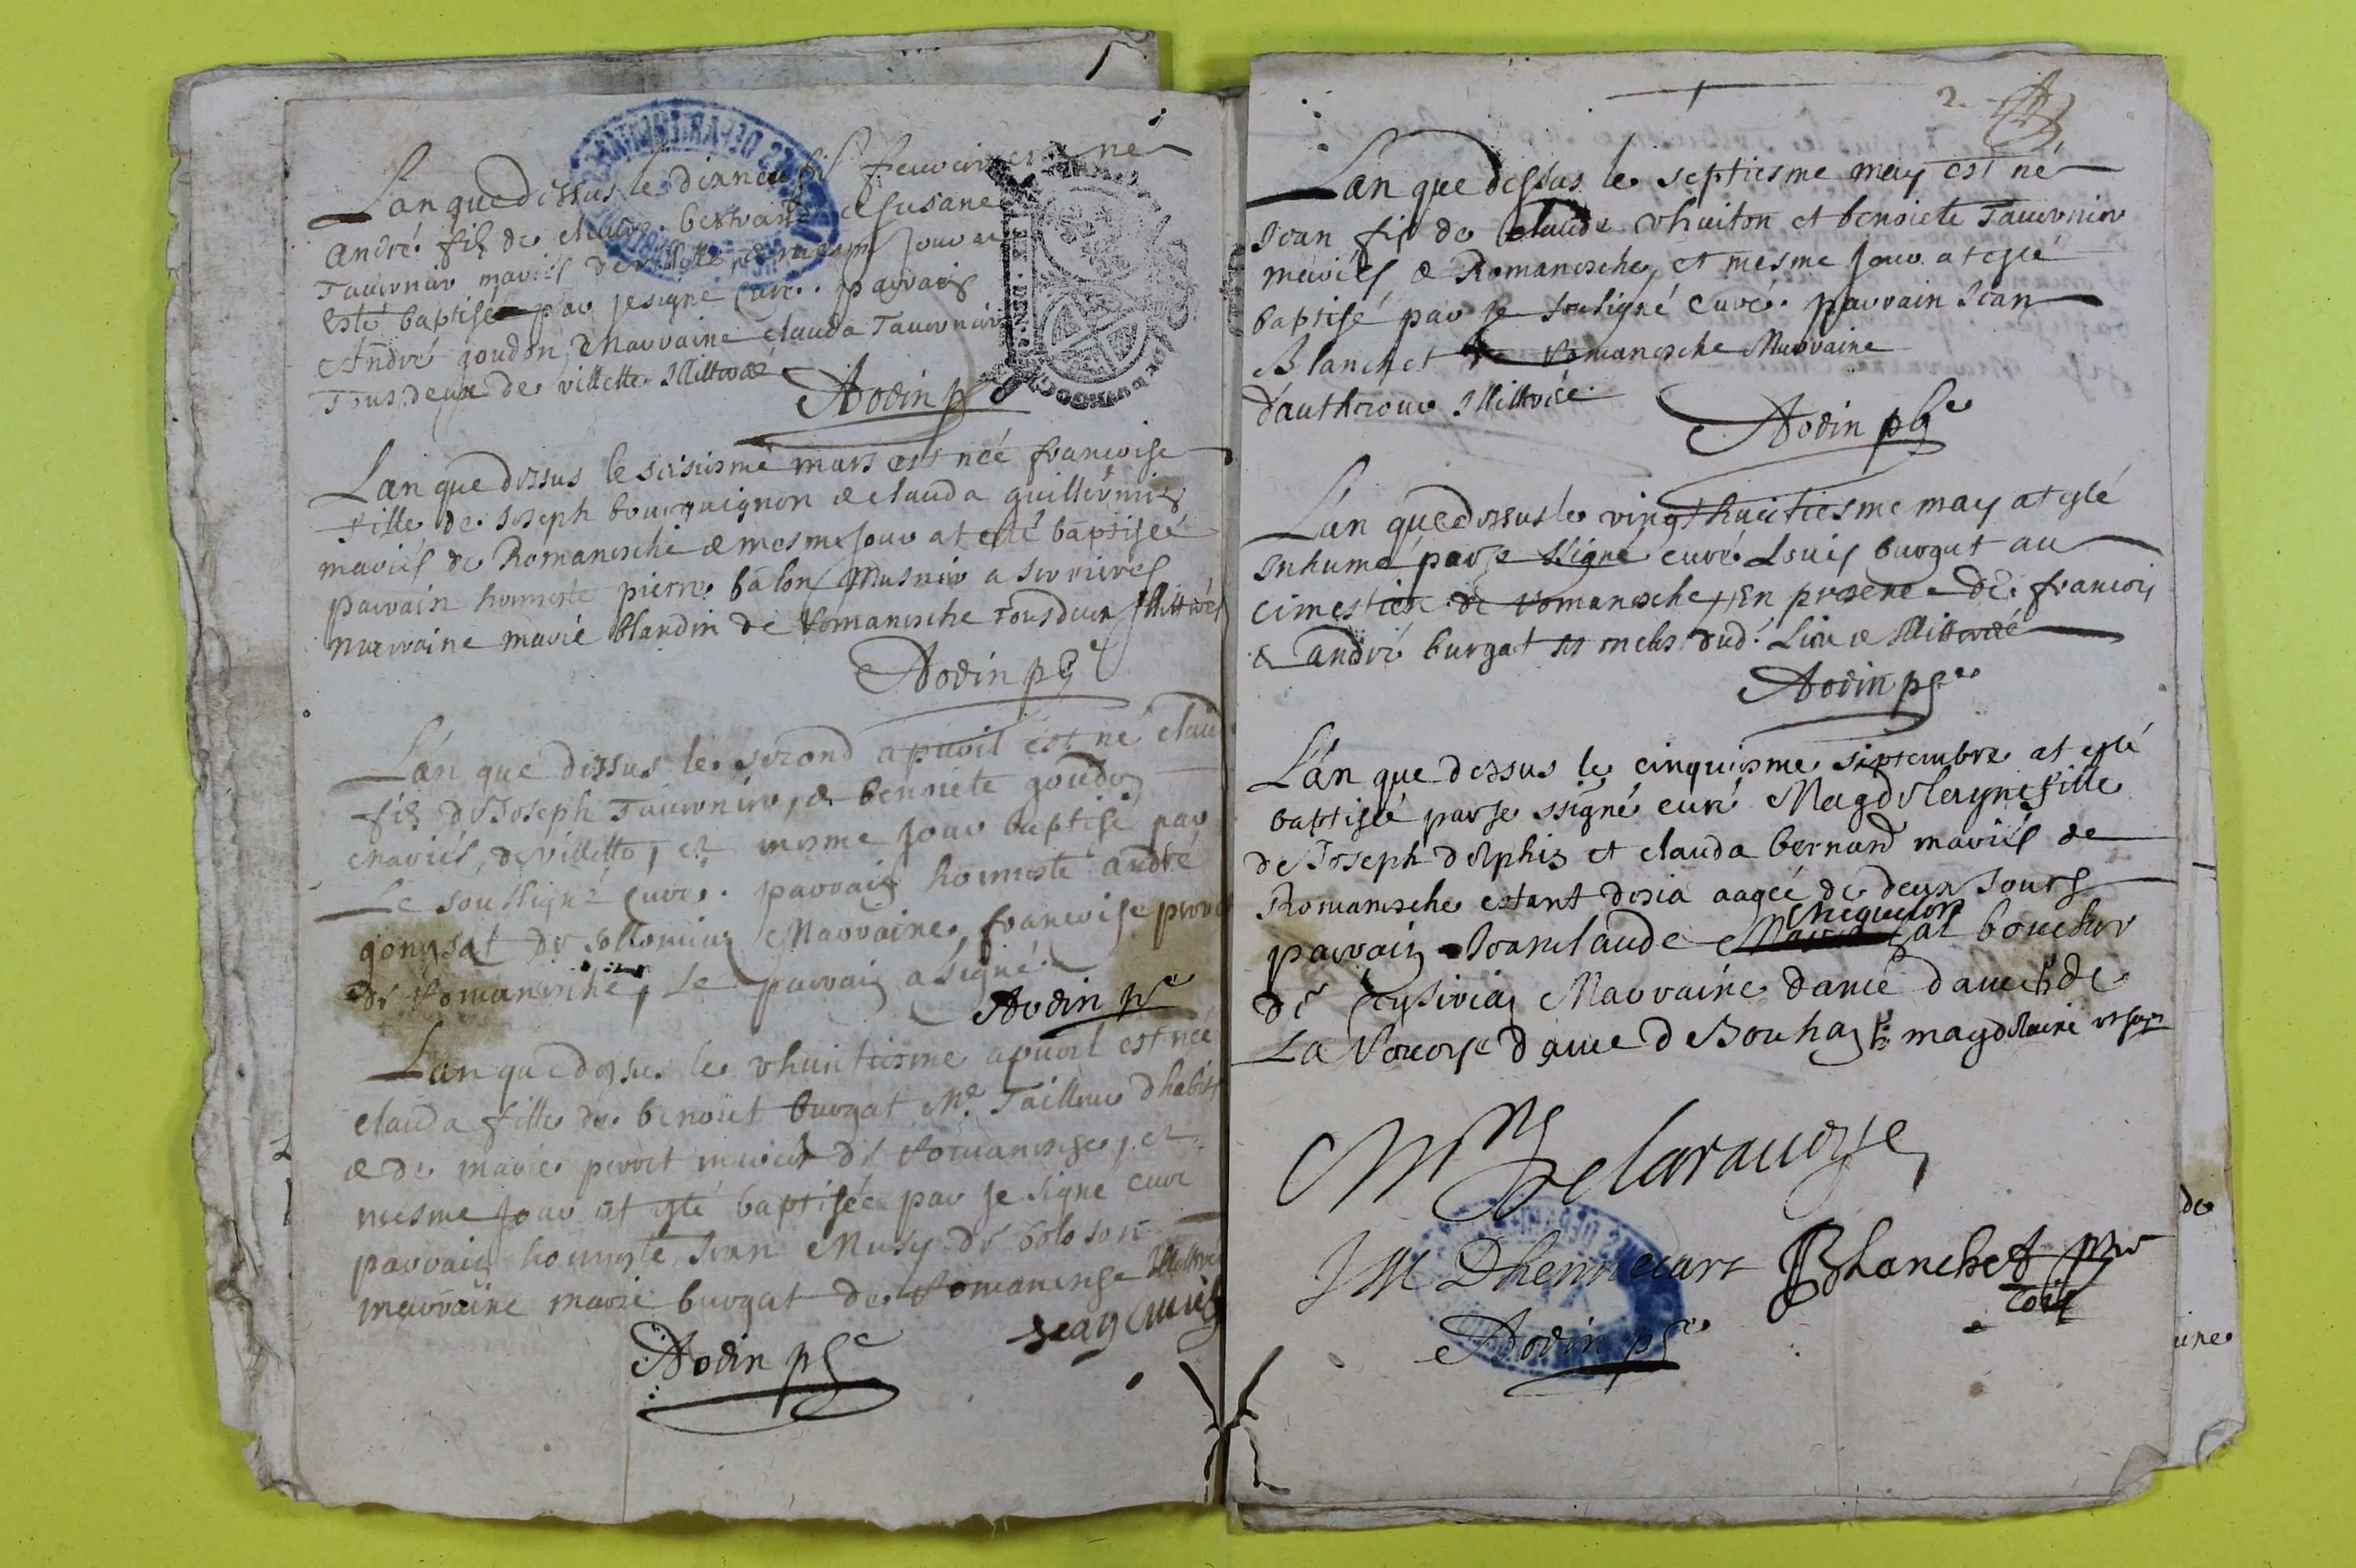 1
Lan que dessus le dixneufis^e feuvrier est né
André fils de claude bertrand & Susane
Tauernier mariés de villette, & mesme Jour at
esté baptisé par je signé Curé. parrain
André goudon, Marraine clauda Tauernier
Tous deux de villette Illitteré
Aodin p^e
Lan que dessus le sesiesme mars est née francoise
fille de Joseph bourguignon & clauda guillermin
mariés de Romanesche & mesme Jour at esté baptisée
parrain honneste pierre balon Musnier a servieres
marraine marie blandin de Romanesche Tous deux Illitteres
Aodin p^e
Lan que dessus le second apuril est né claud
fils de Joseph Tauernier, & benoiete goudon
mariés, de villette, et mesme Jour baptisé par
Le soussigné Curé. parrain honneste andré
gonysat de sollomiat Marraine, francoise perret
de Romanesche, Le parrain a signé
Aodin p^e
Lan que dessus le vhuictiesme apuril est née
clauda fille de benoiet burgat M^e Tailleur dhabits
& de marie perret mariés de Romanesche, et
mesme Jour at esté baptisée par je signé curé
parrain honneste Jean Musy de boloson
marraine marie burgat de Romanesche Illittere
Jean Musy
Aodin p^e
2.
Lan que dessus le septiesme may est né
Jean fils de claude vhuiton et benoiete Tauernier
mariés de Romanesche, et mesme Jour at esté
baptisé par je sousigné curé. parrain Jean
Blanchet de Romanesche Marraine
d'authecour Illitterée
Aodin p^e
Lan que dessus le vingt huictiesme may at esté
Inhumé par je ssigné curé Louis burgat au
cimestiere de Romanesche, En presence de francois
& andré burgat dud. Lieu & Illitteré
Aodin p^e
Lan que dessus le cinquiesme septembre at esté
baptisée par je ssigné curé Magdelayne fille
de Joseph delphin et clauda bernard mariés de
Romanesche estant desia aagée de deux Jours
parrain Jean claude bouchev
de Ceysiria Marraine dame
La Rouorse dame de Bouha magdelaine
M Delarauoyre
J M Dhennecart Blanchet
Aodin p^e